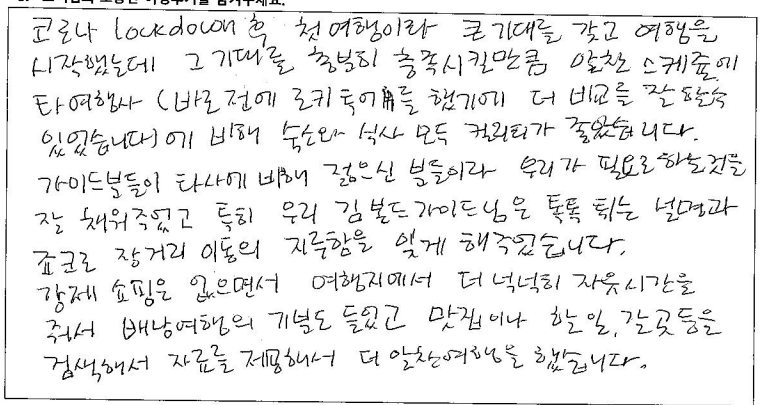 코로나 lockdown 후 첫 여행이라 큰 기대를 갖고 여행을
시작했는데 그 기대를 충분히 충족시킬만큼 알찬 스케쥴에
타여행사 (바로전에 로키투어를 했기에 더 비교를 잘 할수
있었습니다)에 비해 숙소와 식사 모두 퀄리티가 좋았습니다.
가이드분들이 타사에 비해 젊으신 분들이라 우리가 필요로하는것을
잘 채워주었고 특히 우리 김볼드가이드님은 톡톡 튀는 설명과
죠크로 장거리 이동의 지루함을 잊게 해주었습니다.
강제 쇼핑은 없으면서 여행지에서 더 넉넉히 자윳시간을
줘서 배낭여행의 기분도 들었고 맛집이나 할일, 갈곳등을
검색해서 자료를 제공해서 더 알찬여행을 했습니다.